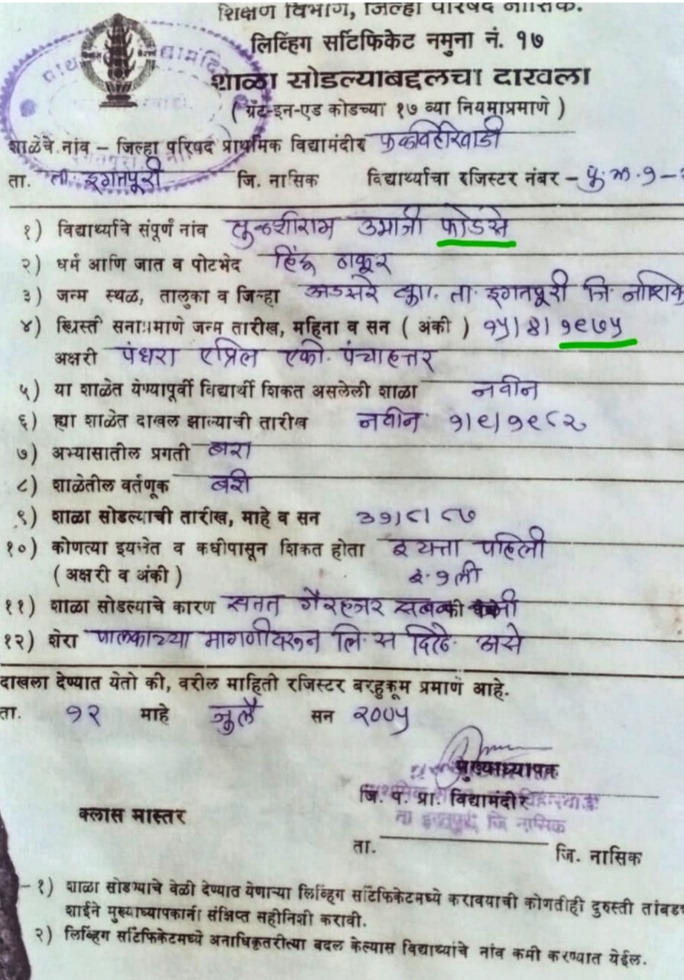 शिक्षण विभाग, जिल्हा परिषद नासिक.
लिव्हिंग सर्टिफिकेट नमुना नं. १७
शाळा सोडल्याबद्दलचा दाखला
( ग्रँट-इन-एड कोडच्या १७ व्या नियमाप्रमाणे )
शाळेचे नांव – जिल्हा परिषद प्राथमिक विद्यामंदीर
ता. ता. इगतपूरी जि. नासिक विद्यार्थ्याचा रजिस्टर नंबर –
१) विद्यार्थ्याचे संपूर्ण नांव तुळशीराम उमाजी फोडसे
२) धर्म आणि जात व पोटभेद हिंदू ठाकूर
३) जन्म स्थळ, तालुका व जिल्हा अडसरे ता. इगतपूरी जि नाशिक
४) ख्रिस्ती सनाप्रमाणे जन्म तारीख, महिना व सन ( अंकी ) १५।४।१९७५
अक्षरी पंधरा एप्रिल एकी. पंचाहत्तर
५) या शाळेत येण्यापूर्वी विद्यार्थी शिकत असलेली शाळा नवीन
६) ह्या शाळेत दाखल झाल्याची तारीख नवीन १।९।१९८२
७) अभ्यासातील प्रगती बरा
८) शाळेतील वर्तणूक बरी
९) शाळा सोडल्याची तारीख, माहे व सन ३१।८।८७
१०) कोणत्या इयत्तेत व कधीपासून शिकत होता इयत्ता पहिली
( अक्षरी व अंकी ) इ. १ ली
११) शाळा सोडल्याचे कारण सतत गैरहजर सबब कमी
१२) शेरा पालकाच्या मागणीवरून लि. स दिले. असे
दाखला देण्यात येतो की, वरील माहिती रजिस्टर बरहुकूम प्रमाणे आहे.
ता. १२ माहे जुलै सन २००५
मुख्याध्यापक
जि. प. प्रा. विद्यामंदीर
ता इगतपुरी जि नासिक
क्लास मास्तर
ता. जि. नासिक
१) शाळा सोडण्याचे वेळी देण्यात येणाऱ्या लिव्हिंग सर्टिफिकेटमध्ये करावयाची कोणतीही दुरुस्ती तांबड्या
शाईने मुख्याध्यापकांनी संक्षिप्त सहीनिशी करावी.
२) लिव्हिंग सर्टिफिकेटमध्ये अनाधिकृतरीत्या बदल केल्यास विद्यार्थ्यांचे नांव कमी करण्यात येईल.